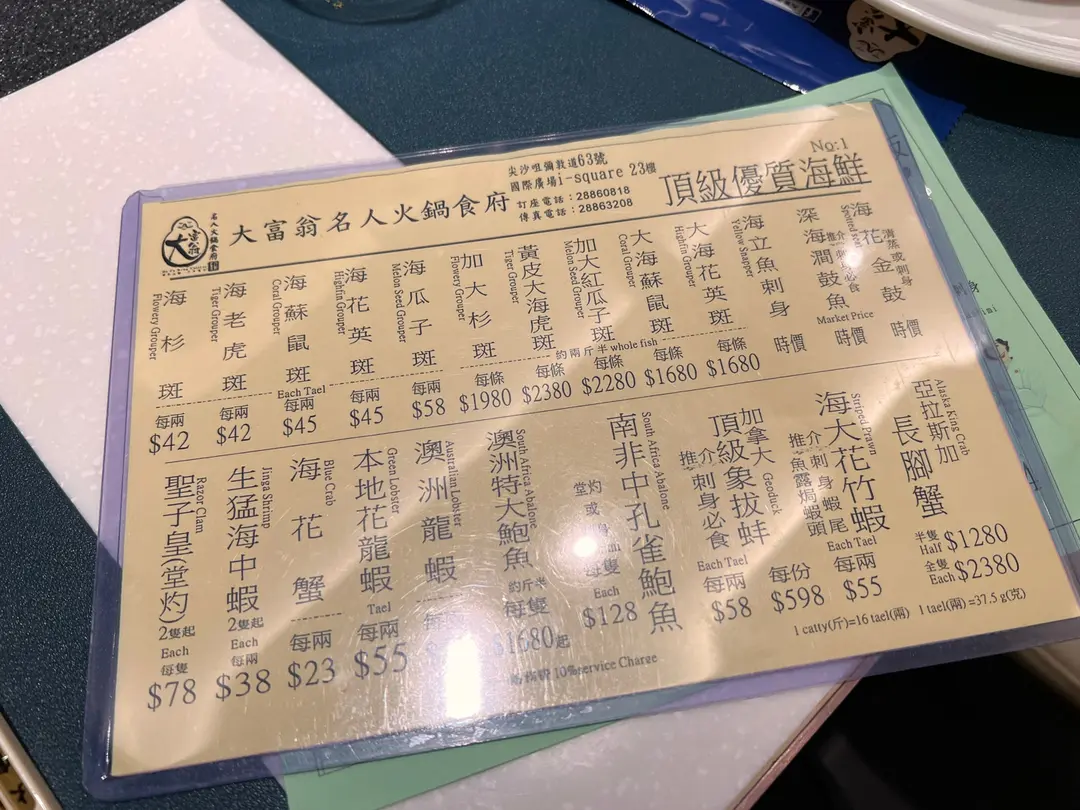 大富翁
名人火鍋食府
大富翁名人火鍋食府
尖沙咀彌敦道63號
國際廣場i-square 23樓
訂座電話：28860818
傳真電話：28863208
No:1
頂級優質海鮮
海杉斑
Flowery Grouper
每兩
$42
海老虎斑
Tiger Grouper
每兩
$42
海蘇鼠斑
Coral Grouper
Each Tael
每兩
$45
海花英斑
Highfin Grouper
每兩
$45
海瓜子斑
Melon Seed Grouper
每兩
$58
加大杉斑
Flowery Grouper
每條
$1980
黃皮大海虎斑
Tiger Grouper
每條
$2380
加大紅瓜子斑
Melon Seed Grouper
約兩斤半 whole fish
每條
$2280
大海蘇鼠斑
Coral Grouper
每條
$1680
大海花英斑
Highfin Grouper
每條
$1680
海立魚刺身
Yellow Snapper
時價
深海澗鼓魚
推介刺身必食
Market Price
時價
海花金鼓
清蒸或刺身
時價
聖子皇(堂灼)
Razor Clam
2隻起
Each
每隻
$78
生猛海中蝦
Jinga Shrimp
2隻起
Each
每兩
$38
海花蟹
Blue Crab
每兩
$23
本地花龍蝦
Green Lobster
Tael
每兩
$55
澳洲龍蝦
Australian Lobster
澳洲特大鮑魚
South Africa Abalone
約斤半
每隻
$1680起
南非中孔雀鮑魚
South Africa Abalone
每隻
Each
$128
加拿大
頂級象拔蚌
Geoduck
推介刺身必食
Each Tael
每兩
$58
海大花竹蝦
Striped Prawn
推介刺身蝦尾
魚露焗蝦頭
每份
$598
Each Tael
每兩
$55
亞拉斯加
長腳蟹
Alaska King Crab
半隻
Half $1280
全隻
Each $2380
10%service Charge
1 catty(斤)=16 tael(兩) 1 tael(兩)=37.5 g(克)